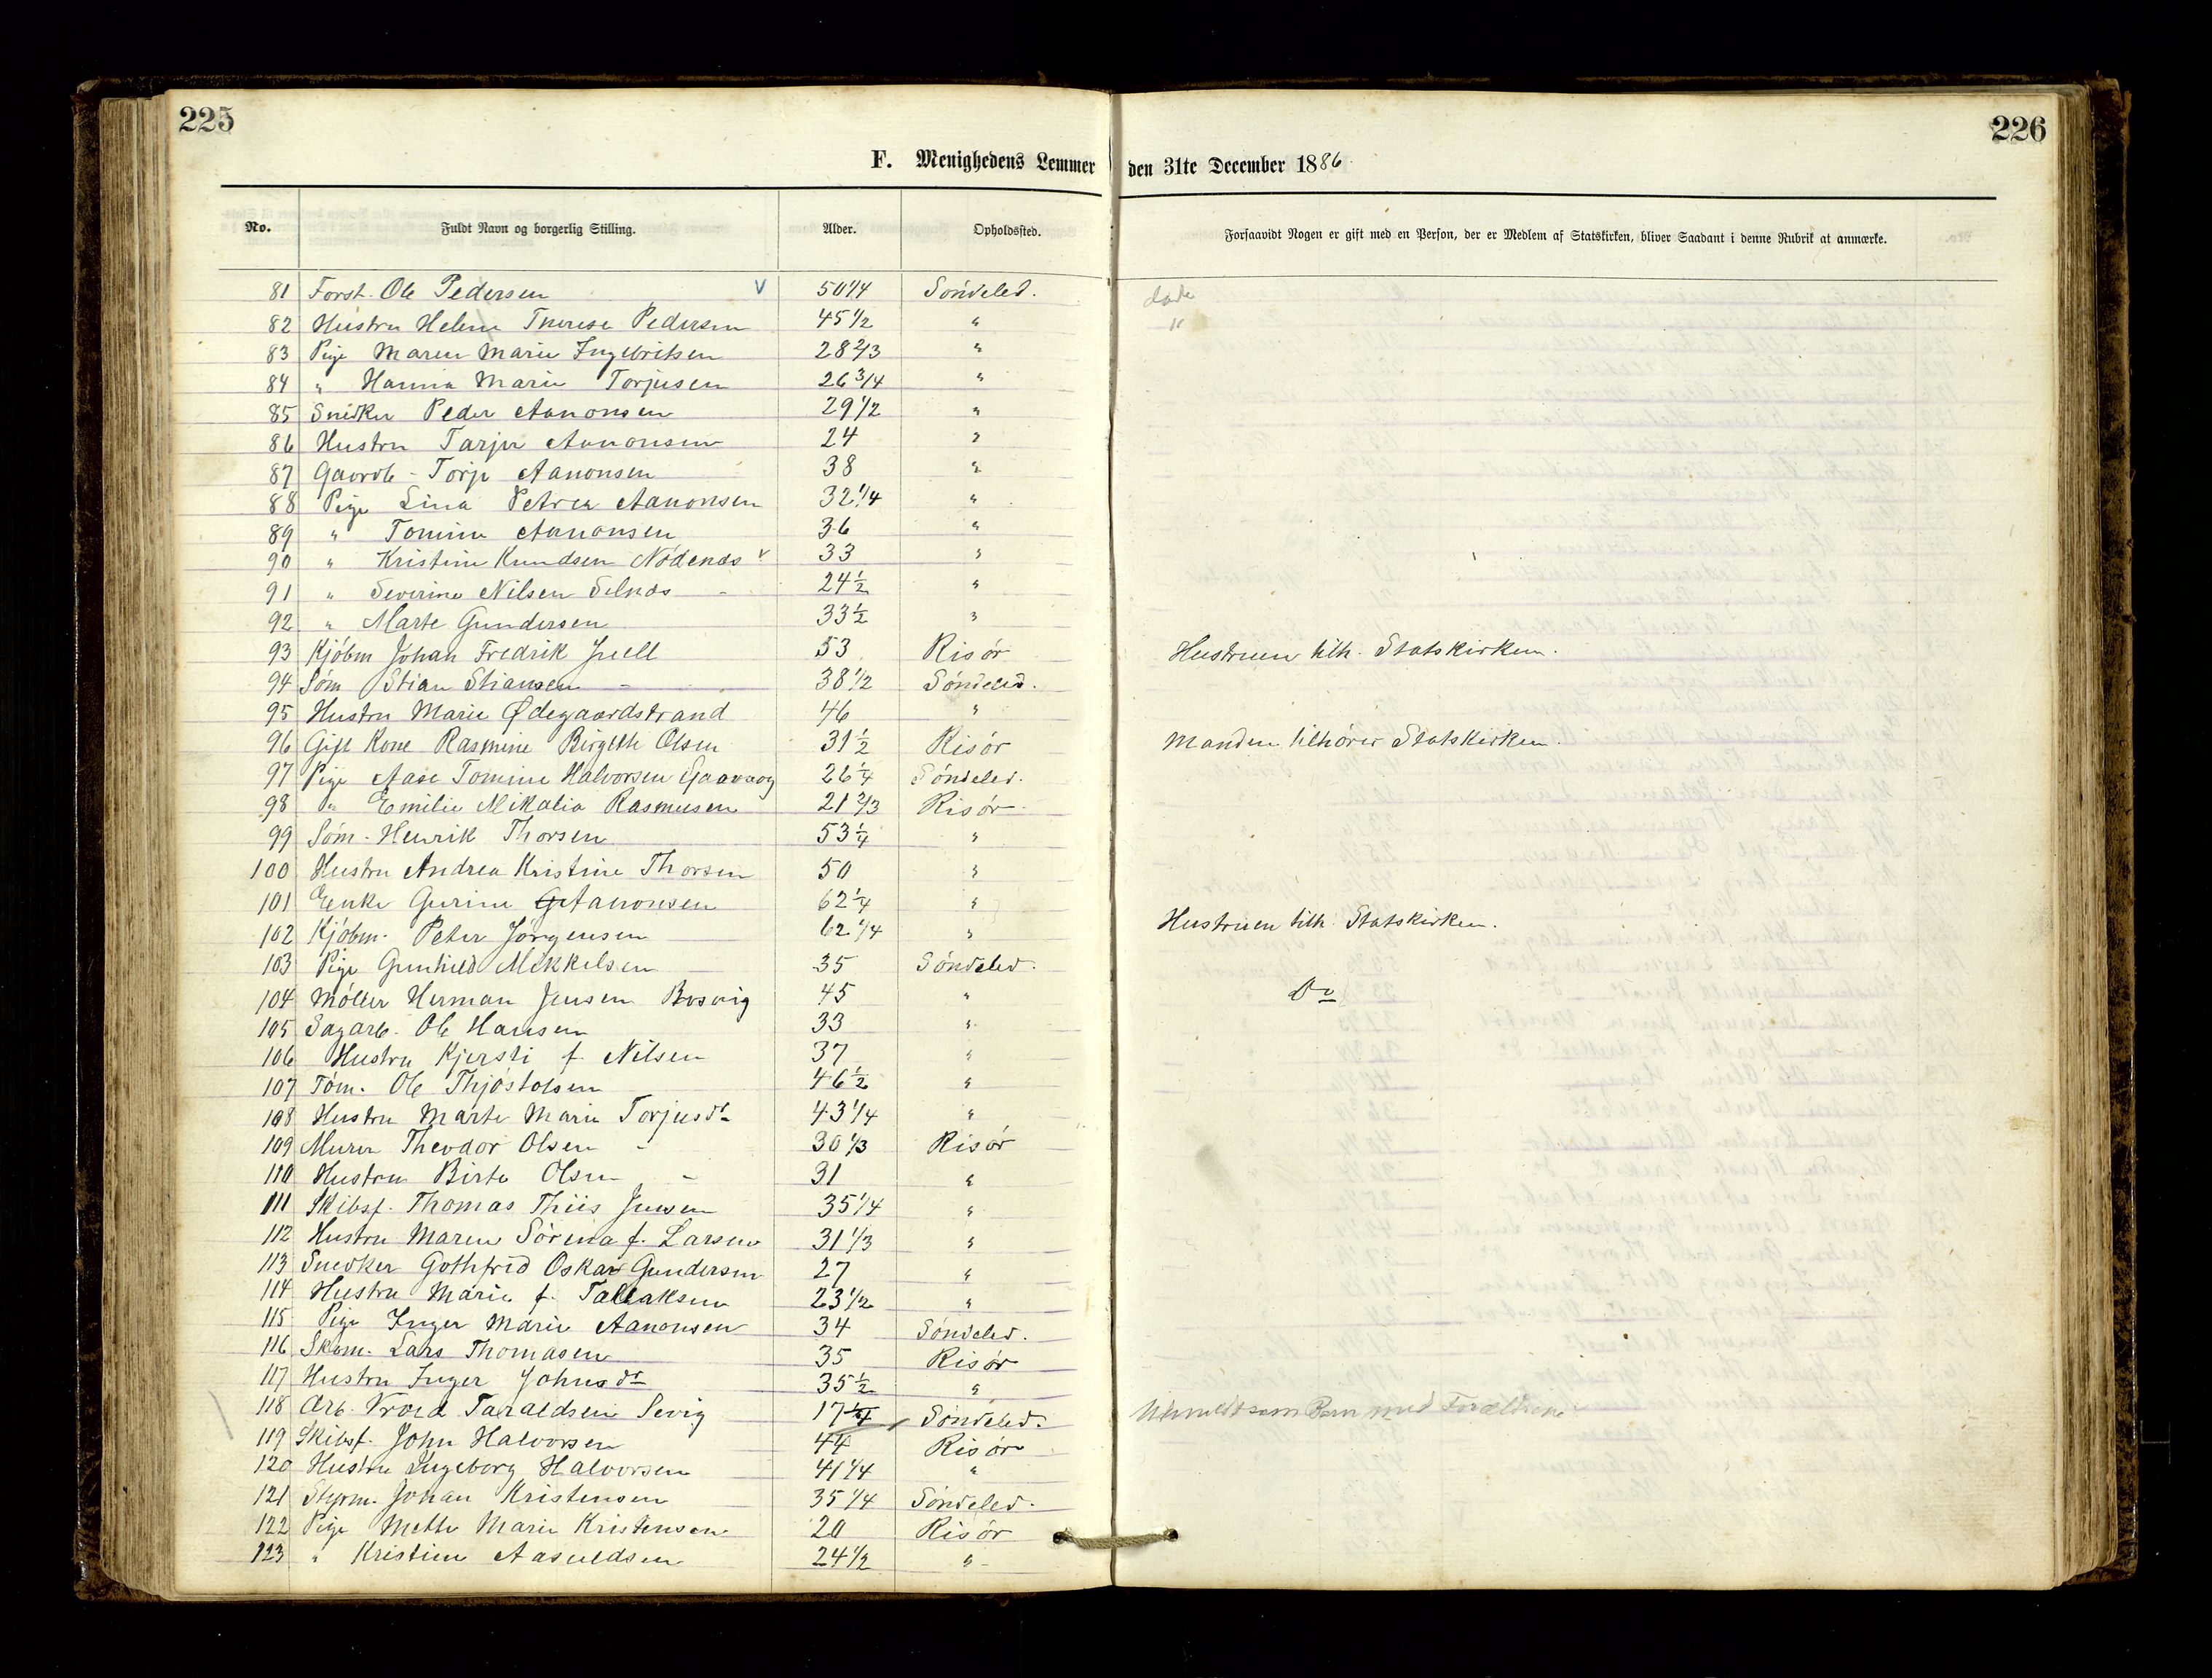 225
226
F. Menighedens Lemmer den 31te December 1886
No. Fuldt Navn og borgerlig Stilling. Alder. Opholdssted. Forsaavidt Nogen er gift med en Person, der er Medlem af Statskirken, bliver Saadant i denne Rubrik at anmærke.
81 Forst. Ole Pedersen V 50 1/4 Söndeled.
82 Hustru Helene Therese Pedersen 45 1/2 "
83 Pige Maren Marie Ingebritsen 28 2/3 "
84 " Hanna Marie Torjusen 26 3/4 "
85 Snidker Peder Aanonsen 29 1/2 "
86 Hustru Tarjer Aanonsen 24 "
87 Gaardb - Torje Aanonsen 38 "
88 Pige Lina Petrea Aanonsen 32 1/4 "
89 " Tomine Aanonsen 36 "
90 " Kristine Knudsen Nödenæs v 33 "
91 " Severine Nilsen Selnæs - 24 1/2 "
92 " Marte Gundersen 33 1/2 "
93 Kjöbm Johan Fredrik Juell 53 Risör Hustruen tilh. Statskirken.
94 Söm Stian Stiansen - 38 1/2 Söndeled.
95 Hustru Marie Ødegaardstrand 46 "
96 Gift Kone Rasmine Birgithe Olsen 31 1/2 Risör Manden tilhörer Statskirken.
97 Pige Aase Tomine Halvorsen 26 1/4 Söndeled.
98 " Emilie Mikalia Rasmusen 21 2/3 Risör
99 Söm - Henrik Thorsen 53 1/4 "
100 Hustru Andrea Kristine Thorsen 50 "
101 Enke Gurine Aanonsen 62 1/4 "
102 Kjöbm. Peter Jörgensen 62 1/4 " Hustruen tilh. Statskirken.
103 Pige Gunhild Mikkelsen 35 Söndeled.
104 Möller Herman Jensen Bosvig 45 " Do
105 Sagarb. Ole Hansen 33 "
106 Hustru Kjersti f. Nilsen 37 "
107 Töm. Ole Thjöstolsen 46 1/2 "
108 Hustru Marte Marie Torjusdr 43 1/4 "
109 Murer Theodor Olsen - 30 1/3 Risör
110 Hustru Birte Olsen - 31 "
111 Skibsf. Thomas Thiis Jensen 35 1/4 "
112 Hustru Maren Sörina f. Larsen 31 1/3 "
113 Snedker Gothfred Oskar Gundersen 27 "
114 Hustru Marie f. Tallaksen 23 1/2 "
115 Pige Inger Marie Aanonsen 34 Söndeled.
116 Skom. Lars Thomasen 35 Risör
117 Hustru Inger Johnsdr 35 1/2 "
118 Arb. Taraldsen Sevig 17 1/4 Söndeled. som Barn med Forældrene
119 Skibsf. John Halvorsen 44 Risör
120 Hustru Ingeborg Halvorsen 41 1/4 "
121 Styrm. Johan Kristensen 35 1/4 Söndeled.
122 Pige Mette Marie Kristensen 20 Risör
123 " Kristine Aasuldsen 24 1/2 "